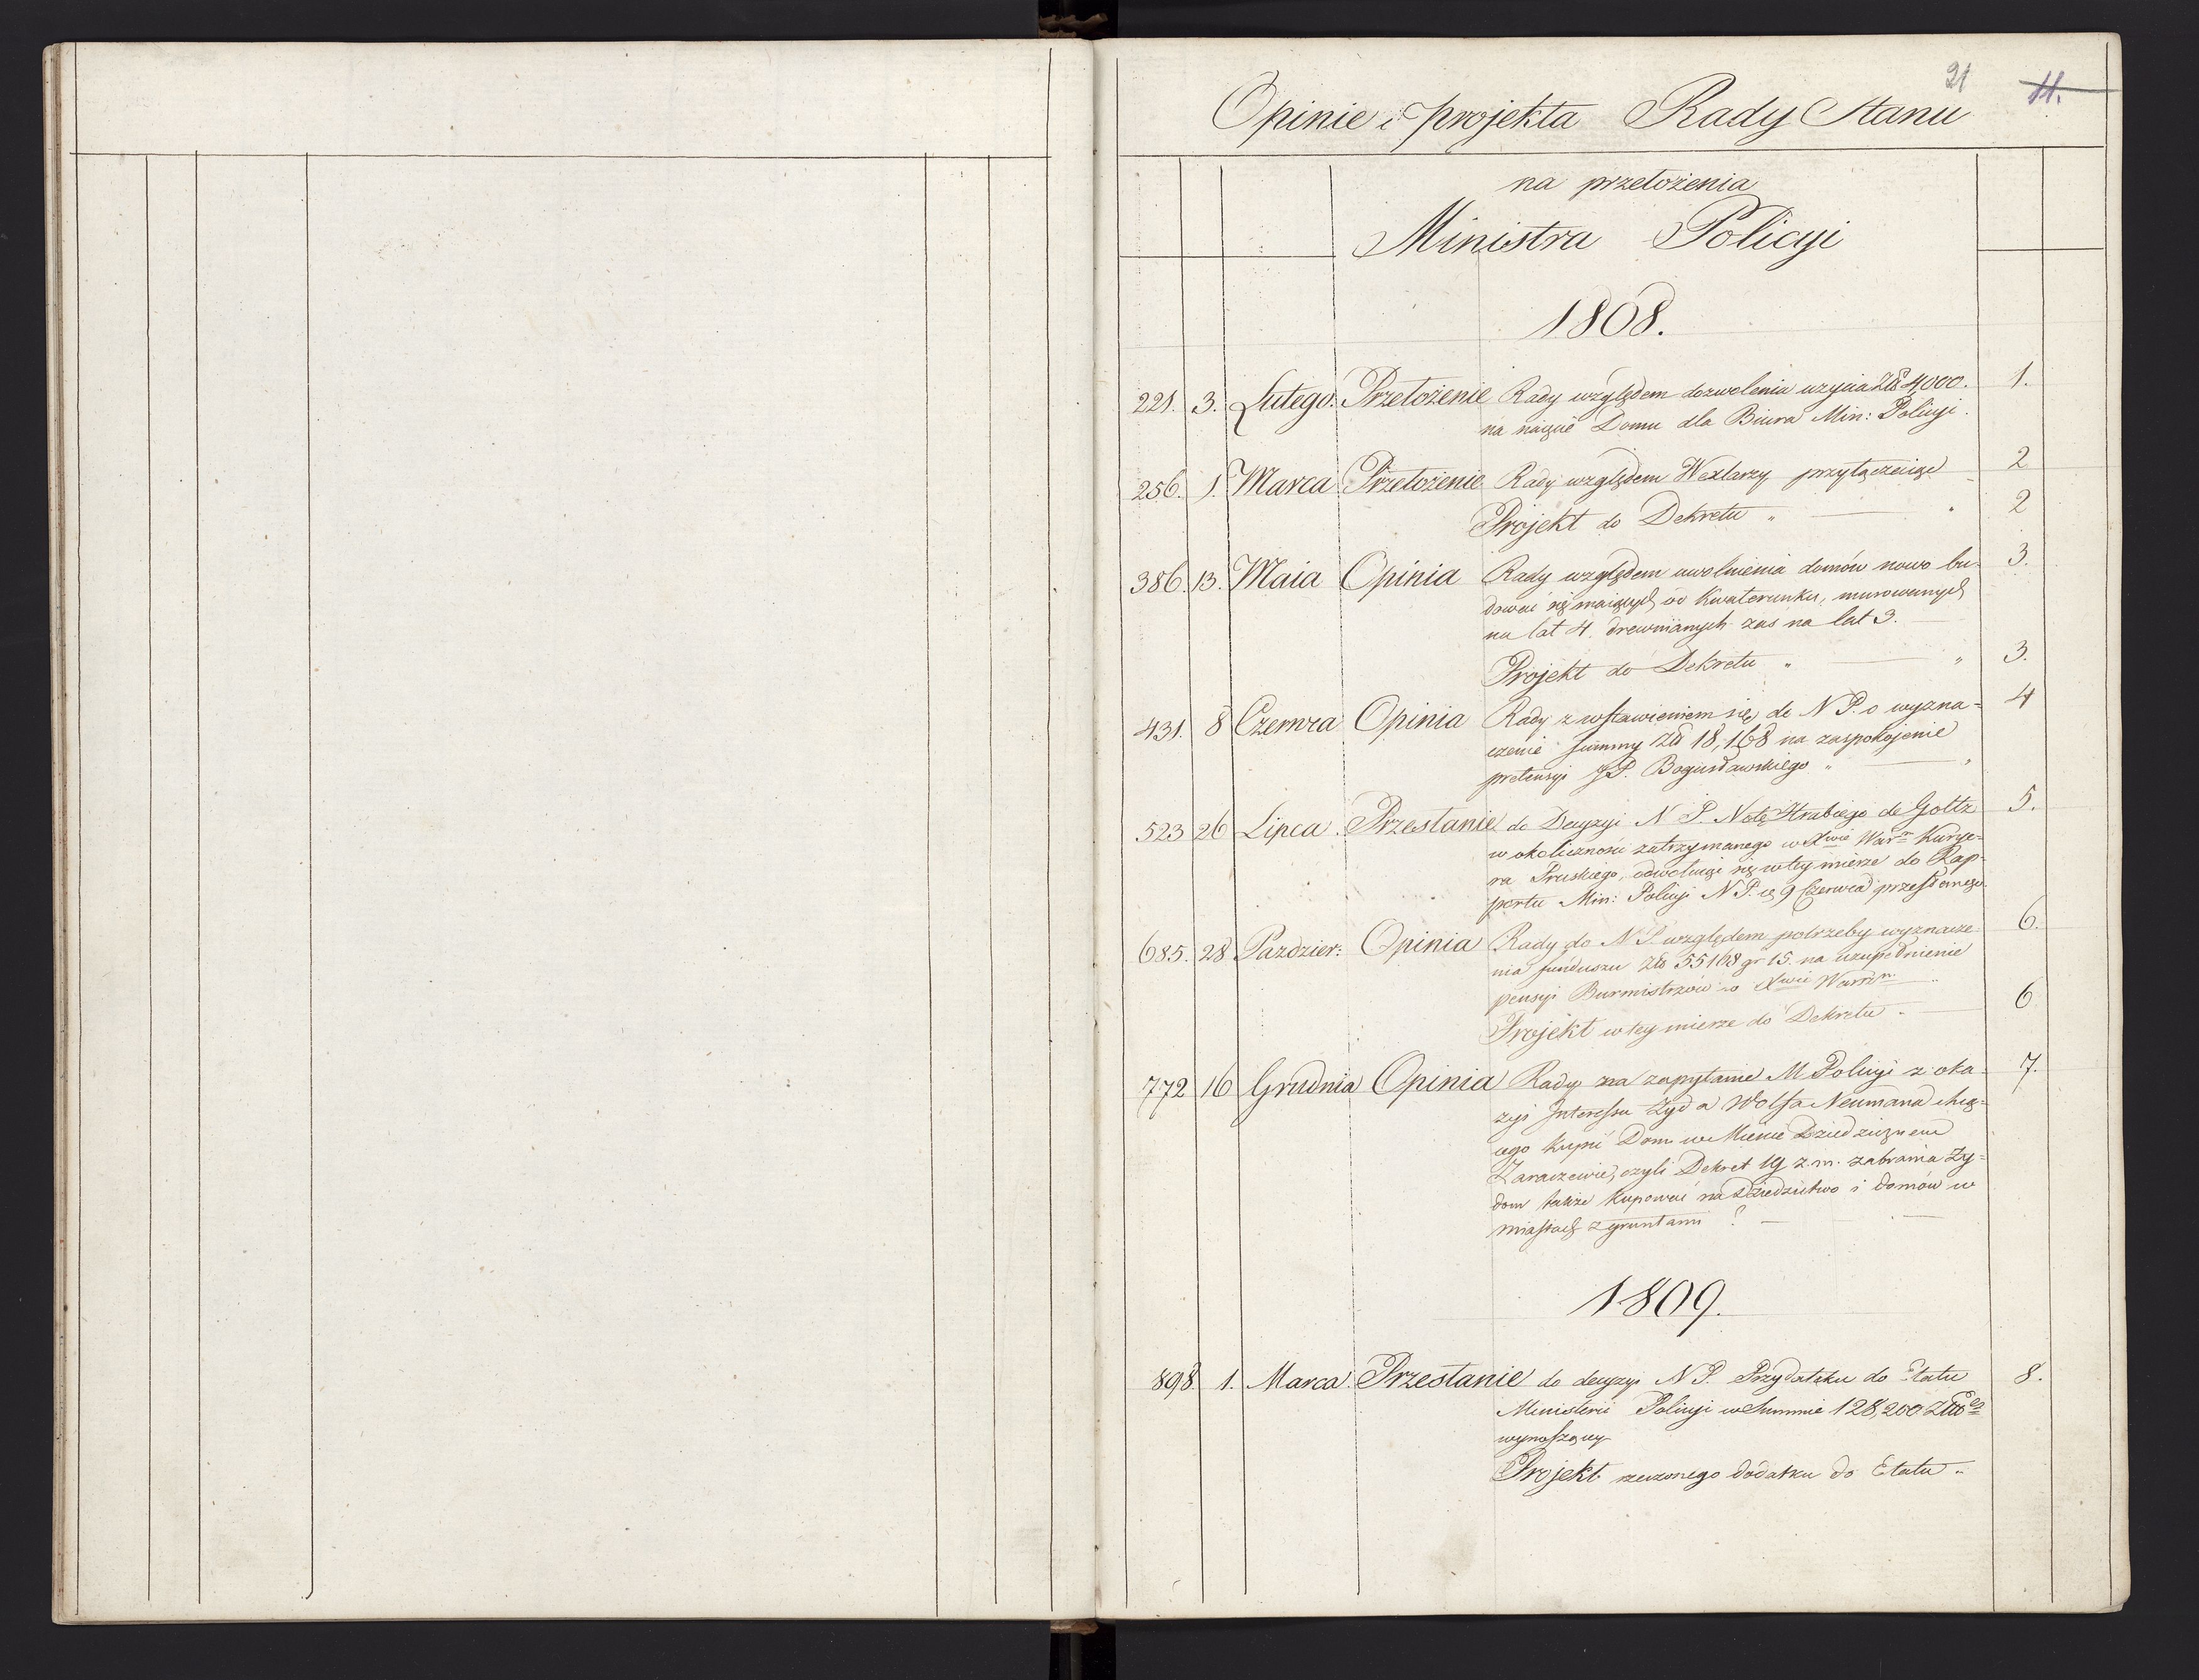 21 11.
Opinie i projekta Rady Stanu
na przełożenia
Ministra Policyi
1808.
221. 3. Lutego. Przełożenie Rady względem dozwolenia użycia Zł 4000. 1.
na naięcie Domu dla Biura Min: Policyi.
256. 1. Marca Przełożenie Rady względem Wexlarzy przyłączaiąc 2
Projekt do Dekretu „ — „ 2
386. 13. Maia Opinia Rady względem uwolnienia domów nowo bu- 3.
dować się maiących od Kwaterunku, murowanych
na lat 4. drewnianych zas na lat 3. —
Projekt do Dekretu „ — „ 3.
431. 8 Czerwca Opinia Rady z wstawieniem się do N P. o wyzna= 4
czenie Summy Zł 18,168 na zaspokojenie
pretensyi JP. Bogusławskiego „ — „
523 26 Lipca. Przesłanie do Decyzyi N P. Notę Hrabiego de Goltz 5.
w okoliczności zatrzymanego w Xtwie Warm Kurye=
ra Pruskiego, odwołuiąc się w tey mierze do Rap-
portu Min: Policyi N P. d 9 Czerwca przesłanego.
685. 28 Pazdzier: Opinia Rady do N P względem potrzeby wyznacze- 6.
nia funduszu Zł 55168 gr 15. na uzupełnienie
pensyi Burmistrzów w Xtwie Warm — „
Projekt w tey mierze do Dekretu „ — 6
772 16 Grudnia Opinia Rady na zapytanie M Policyi z oka- 7.
zyi Interessu Żyda Wolfa Neumana chcą=
cego kupić Dom w Mieście Dziedzicznem
Zaraczewie, czyli Dekret 19 z. m. zabrania Ży=
dom także kupować na Dziedzictwo i domów w
miastach z gruntami ? — —
1809.
898. 1. Marca. Przesłanie do decyzyi N P. Przydatku do Etatu 8.
Ministerii Policyi w Summie 128,200 Złł
wynoszący
Projekt rzeczonego dodatku do Etatu „